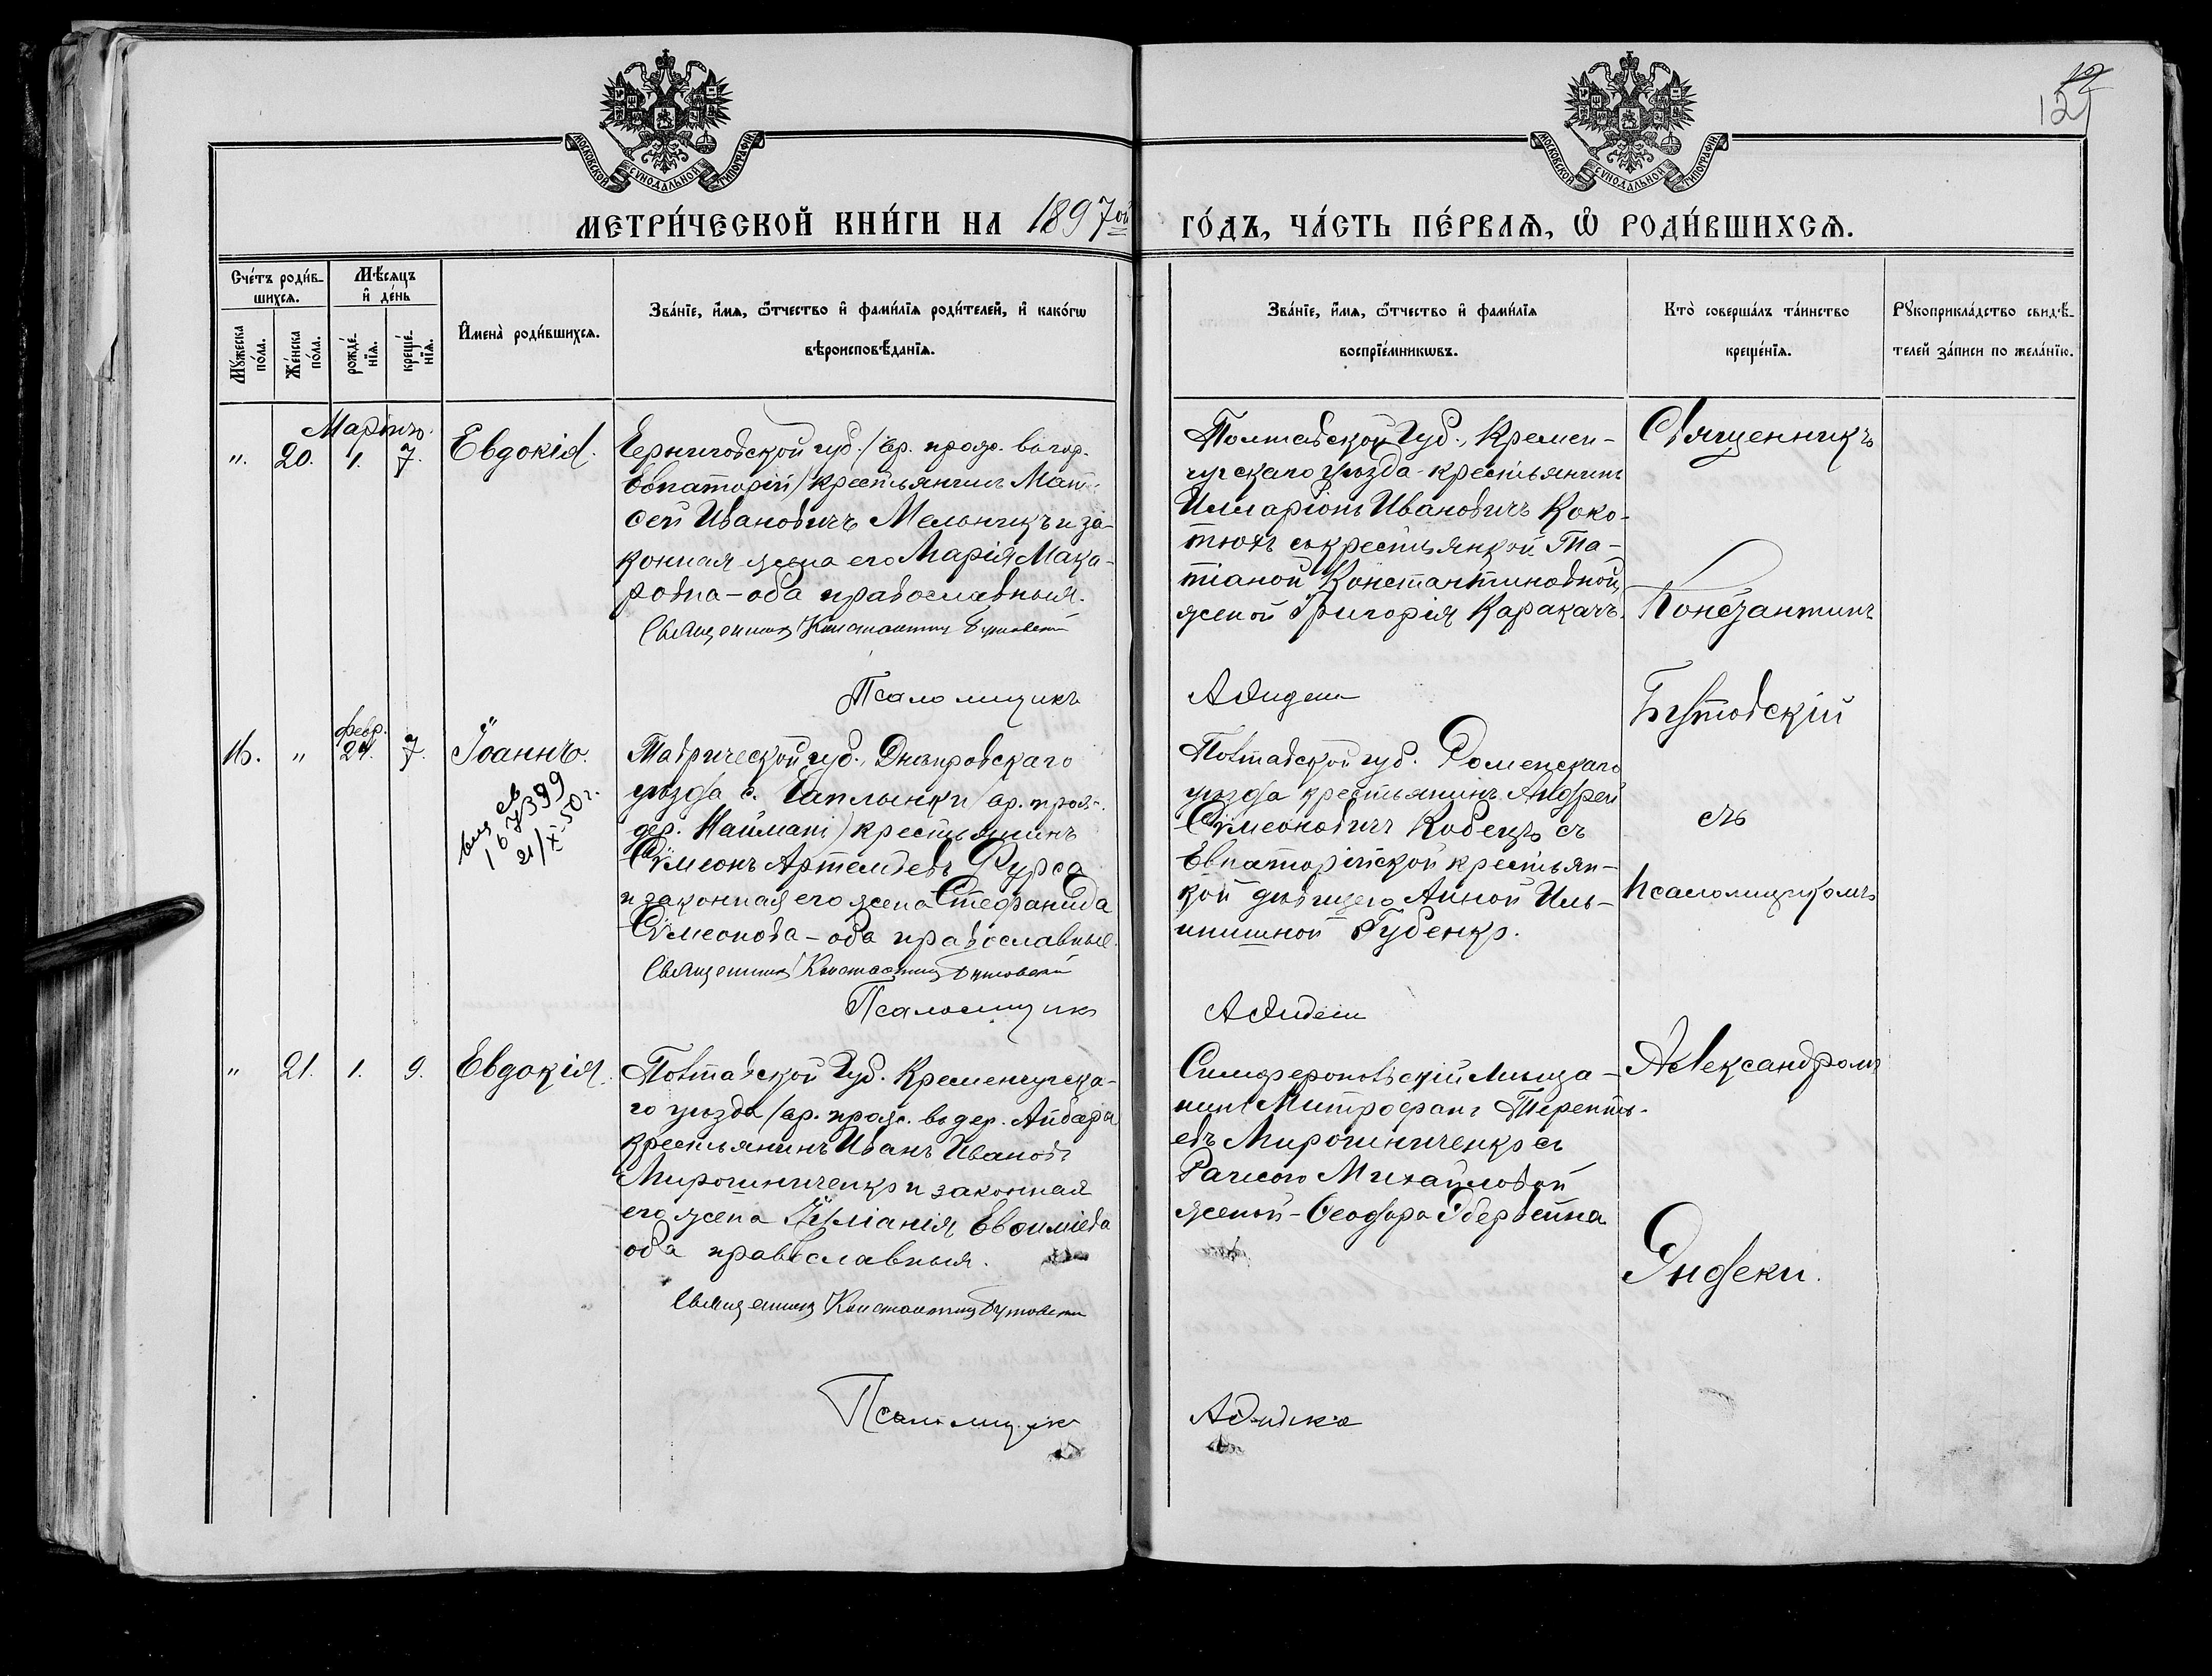 МОСКОВСКОЙ СѴНОДАЛЬНОЙ ТИПОГРАФІИ
МОСКОВСКОЙ СѴНОДАЛЬНОЙ ТИПОГРАФІИ
121
МЕТРИ́ЧЕСКОЙ КНИ́ГИ НА 1897ой ГО́ДЪ, ЧА́СТЬ ПЕ́РВАѦ, Ѡ҆ РОДИ́ВШИХСѦ.
Сче́тъ роди́в-
шихсѧ.
Мѣ́сѧцъ
и҆ де́нь
Мꙋ́жеска
по́ла.
Же́нска
по́ла.
рожде́-
нїѧ.
креще́-
нїѧ.
И҆мена̀ роди́вшихсѧ.
Зва́нїе, и҆́мѧ, ѻ҆́тчество и҆ фами́лїѧ роди́телей, и҆ како́гѡ
вѣроисповѣ́данїѧ.
Зва́нїе, и҆́мѧ, ѻ҆́тчество и҆ фами́лїѧ
воспрїе́мникѡвъ.
Кто̀ соверша́лъ та́инство
креще́нїѧ.
Рꙋкоприкла́дство свидѣ́-
телей за́писи по жела́нїю.
Мартъ.
". 20. 1. 7. Евдокія.
Черниговской губ. (вр. прож. въ гор.
Евпаторіи) крестьянинъ Мат-
ѳей Ивановичъ Мельникъ и за-
конная жена его Марія Мака-
ровна – оба православныя.
Священникъ Константинъ Бутовскій
Псаломщикъ
Полтавской Губ., Кремен-
чугскаго уѣзда крестьянинъ
Илларіонъ Ивановичъ Коко-
тюхъ съ крестьянкой Та-
тіаной Константиновной,
женой Григорія Каракачъ.
Священникъ
Константинъ
Бутовскій
съ
псаломщикомъ
Александромъ
Яндеки.
Февр.
16. " 24. 7. Іоаннъ.
выд св
167399
21/X-50 г.
Таврической губ., Днѣпровскаго
уѣзда с. Чаплынки (вр. прож.
дер. Найманъ) крестьянинъ
Сѵмеонъ Артемьевъ Фурса
и законная его жена Стефанида
Сѵмеонова – оба православные.
Священникъ Константинъ Бутовскій
Псаломщикъ
Полтавской губ. Роменскаго
уѣзда крестьянинъ Андрей
Сѵмеоновичъ Кобецъ съ
Евпаторійской крестьян-
кой дѣвицею Анной Иль-
инишной Губенко.
" 21. 1. 9. Евдокія.
Полтавской Губ. Кременчугска-
го уѣзда (вр. прож. въ дер. Айбары
крестьянинъ Иванъ Ивановъ
Мирошниченко и законная
его жена Іуліанія Евѳиміева
оба православныя.
Священникъ Константинъ Бутовскій
Псаломщикъ
Симферопольскій мѣща-
нинъ Митрофанъ Теренть-
евъ Мирошниченко съ
Михайловой
женой – Ѳеодора